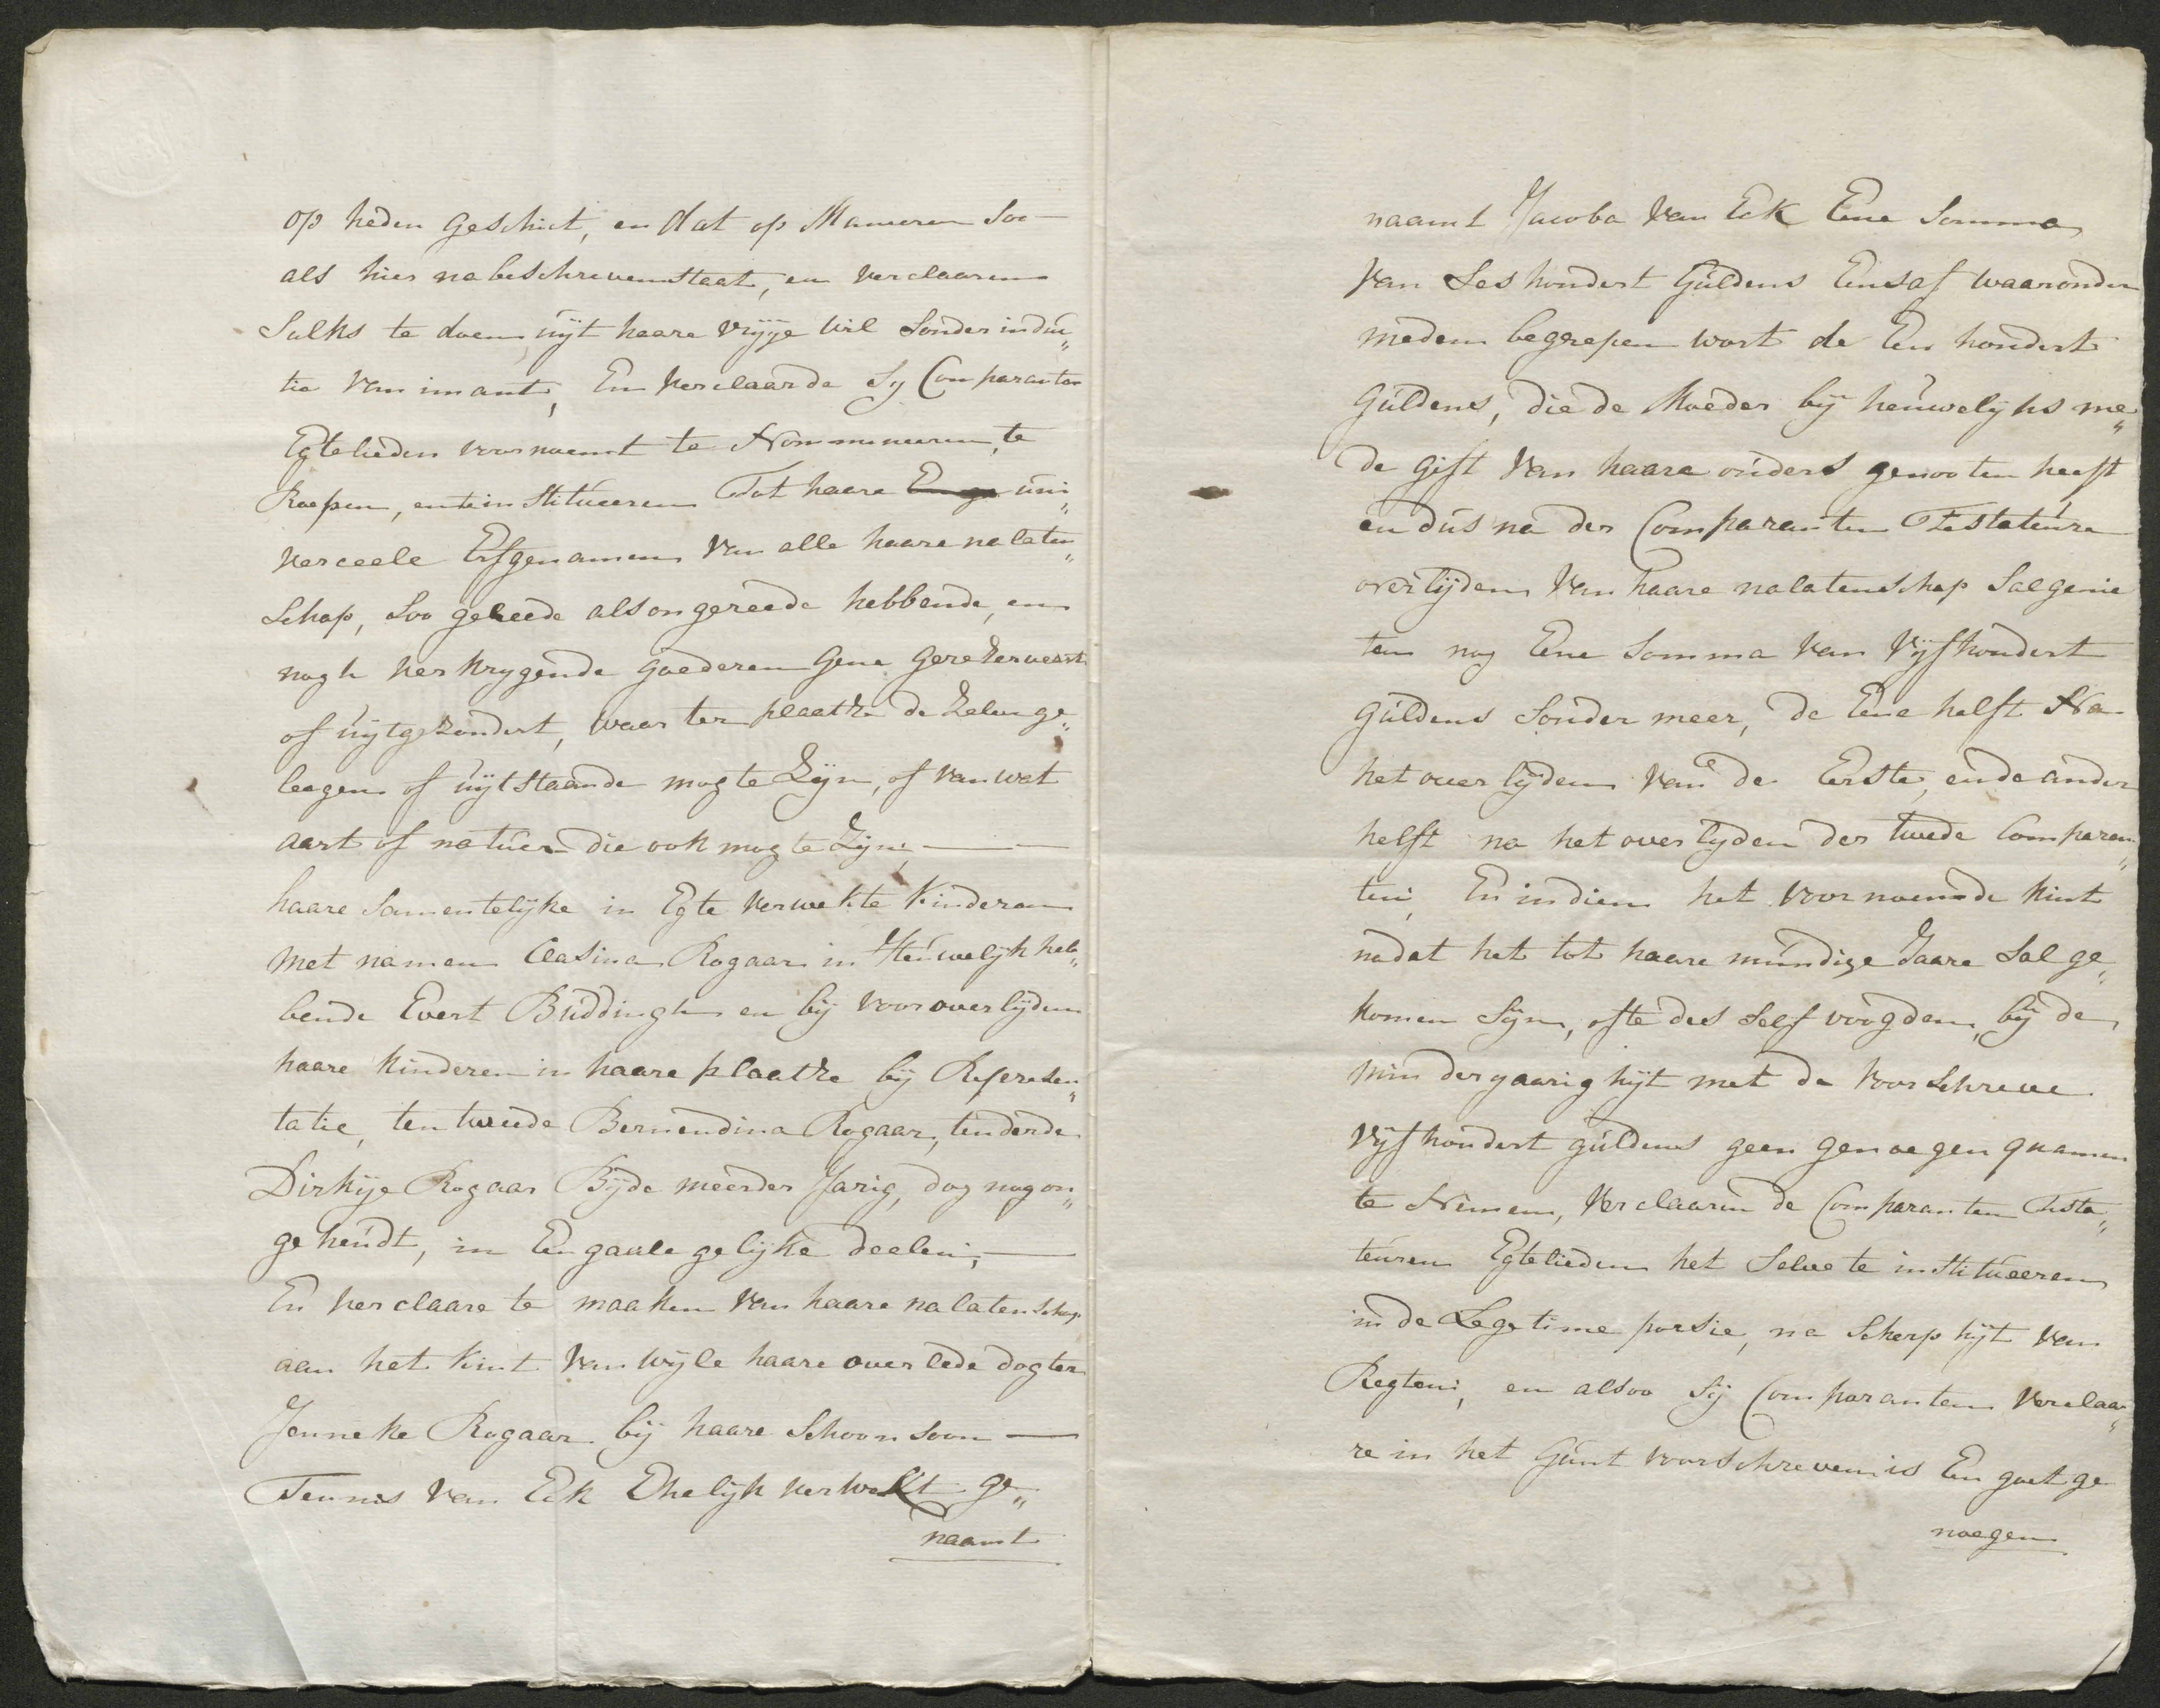 op heden geschiet, en dat op Manieren Soo
als hier nabeschreven Staat, en verclaaren
Sulks te doen uÿt haare vrÿge wil Sonder induc„
tie van imant, En verclaarde Sÿ Comparanten
Egtelieden voornoemt te Nommineeren, te
Roepen, en te institueeren Tot haare uni„
verceele Erfgenamen van alle haare nalaten„
Schap, Soo gereede als ongereede hebbende, en
nogh verkrygende goederen Gene gerezerveert
of uÿtgezondert, waar ter plaatze de zelve ge„
leegen of uÿtstaande mogte Zÿn, of van wat
aart of natuer die ook mogte Zÿn,
haare Samentelÿke in Egte verwekte Kinderen
met namen Clasina Rogaar in Heuwelÿk heb„
bende Evert Buddingh en bÿ vooroverlÿden
haare kinderen in haare plaatze bÿ Represen„
tatie, ten tweede Bernendina Rogaar, ten derde
Dirkÿe Rogaar Bÿde meerder Jarig, dog nog on„
geheudt, in Engaale gelÿke deelen,
En verclaare te maaken van haare nalatenschap
aan het Kint van wÿle haare overlede dogter
Jenneke Rogaar bÿ haare Schoonsoon
Teunis van Eck Ehelÿk verwekt ge„
naamt
naamt Jacoba van Eck Eene Somma
van Ses hondert Guldens Eensaf waaronder
meden begrepen wort de Een hondert
Guldens, die de Moeder bÿ heuwelÿks me„
de gift van haare ouders genooten heeft
en dus na der Comparanten Testateure
overlÿden van haare nalatenschap Sal genie
ten nog Eene Somma van Vÿfhondert
Guldens Sonder meer, de Eene helft Na
het overlÿden van de Eerste, en de ander
helft na het overlÿden der twede Comparan„
ten, En indien het voornoemde Kint
nadat het tot haare mundige Jaare Sal ge„
komen Sÿn, ofte des Selfs voogden, bÿ de
mindergaarighÿt met de voorschreve
Vÿfhondert guldens geen genoegen quamen
te Nemen, verclaaren de Comparanten Testa„
teuren Egtelieden het Selve te institueeren
in de Legetime porsie, na Scherphÿt van
Regten, en alsoo Sÿ Comparanten verclaar„
re in het Gunt voorschreven is Een goet ge
noegen